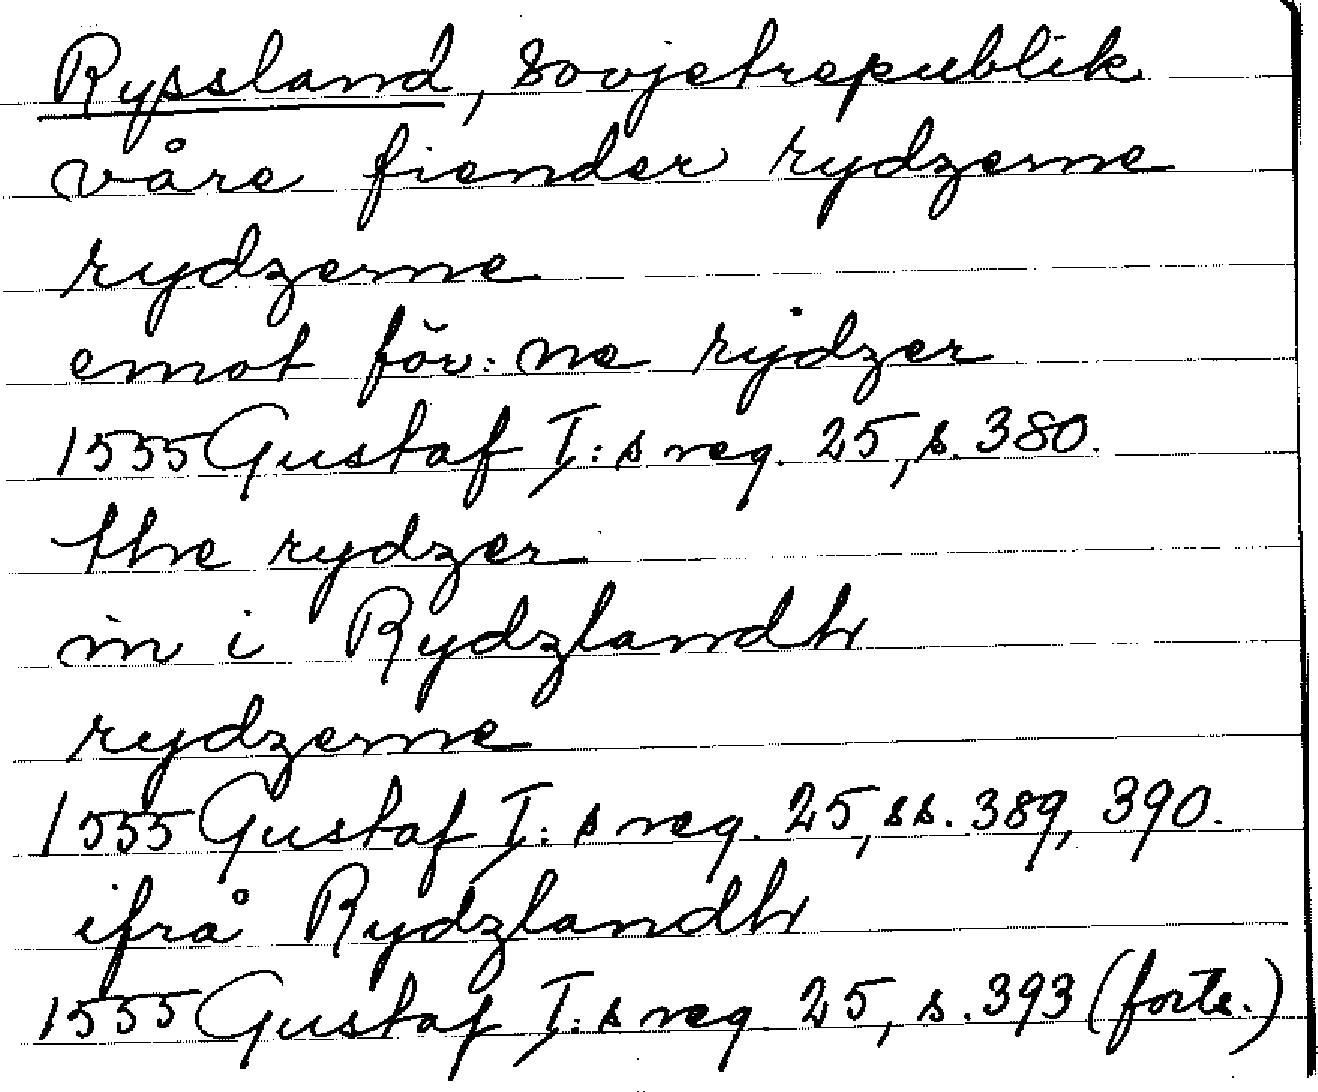 Ryssland, Sovjetrepublik
våre fiender rydzerne
rydzerne
emot för:ne rydzer
1555 Gustaf I:s reg. 25, s. 380.
the rydzer
in i Rydzlandh
rydzerne
1555 Gustaf I:s reg. 25, ss. 389, 390.
ifrå Rydzlandh
1555 Gustaf I:s reg. 25, s. 393 (forts.)